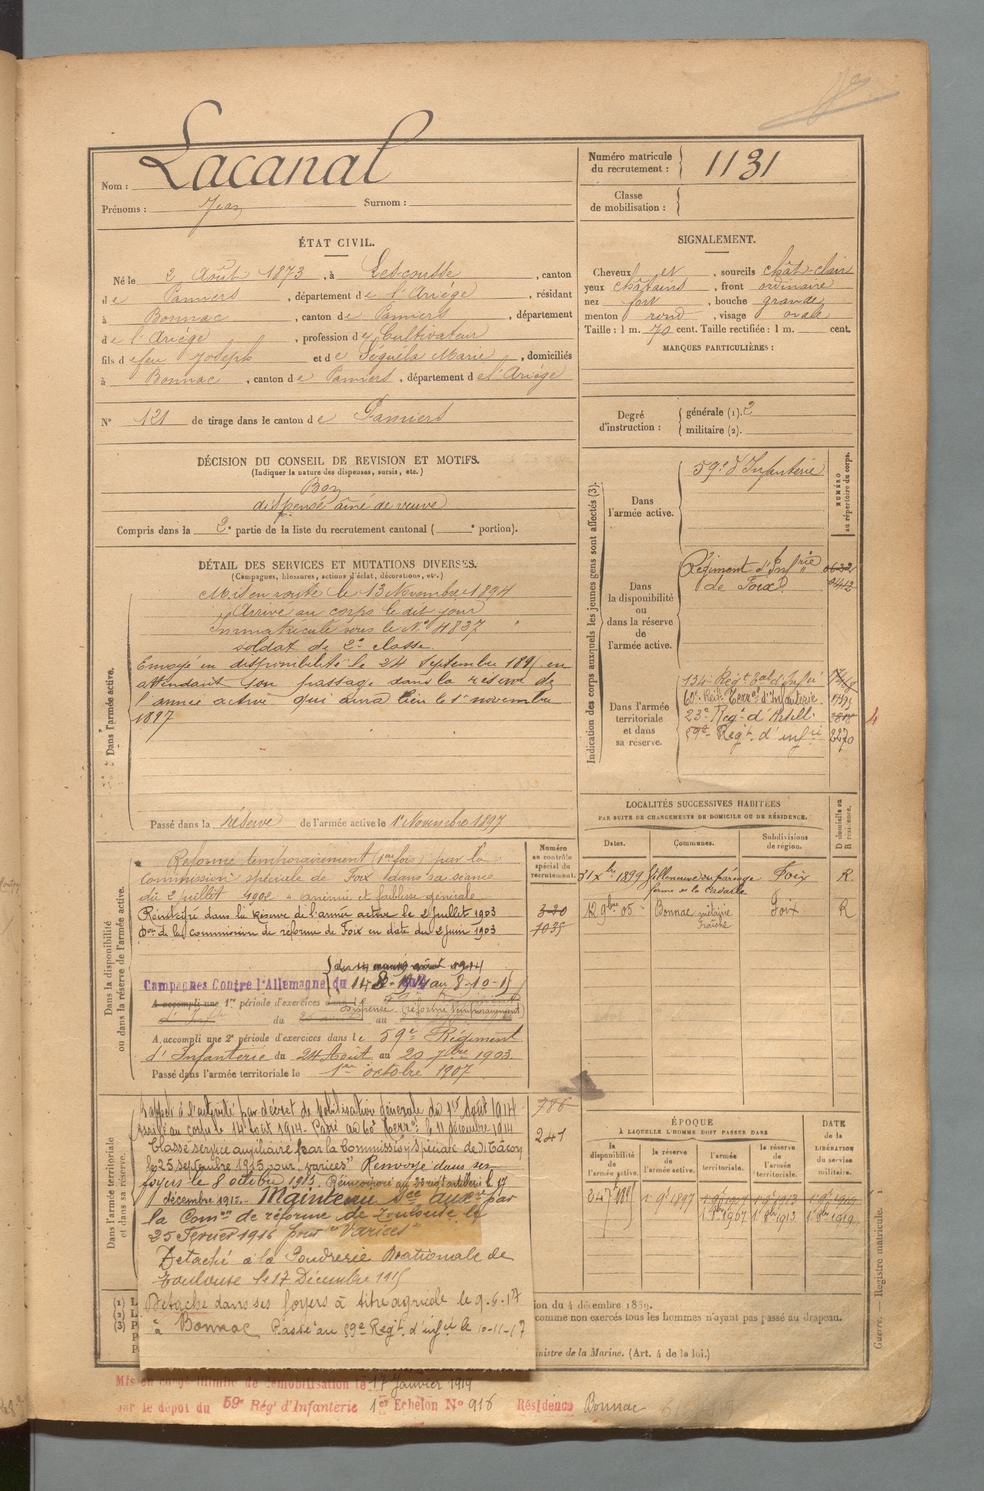 Nom : Lacanal
Prénoms : Jean Surnom :
Numéro matricule du recrutement : 1131
Classe de mobilisation :
ÉTAT CIVIL.
Né le 2 Août 1873, à Lescousse, canton
de Pamiers, département de l'Ariège, résidant
à Bonnac, canton de Pamiers, département
de l'Ariège, profession de Cultivateur
fils de feu Joseph et de Séguéla Marie, domiciliés
à Bonnac, canton de Pamiers, département de l'Ariège
N° 121 de tirage dans le canton de Pamiers
SIGNALEMENT.
Cheveux et, sourcils chât-clair
yeux châtains, front ordinaire
nez fort, bouche grande
menton rond, visage ovale
Taille : 1 m. 70 cent. Taille rectifiée : 1 m. cent.
MARQUES PARTICULIÈRES :
Degré d'instruction : générale (1). 2
militaire (2).
DÉCISION DU CONSEIL DE REVISION ET MOTIFS.
(Indiquer la nature des dispenses, sursis, etc.)
Bon
dispensé aîné de veuve
Compris dans la 2e partie de la liste du recrutement cantonal ( e portion).
DÉTAIL DES SERVICES ET MUTATIONS DIVERSES.
(Campagnes, blessures, actions d'éclat, décorations, etc.)
Dans l'armée active.
Mis en route le 13 Novembre 1894
Arrivé au corps le dit jour
Immatriculé sous le N° 4837
soldat de 2e classe
Envoyé en disponibilité le 24 Septembre 1895 en
attendant son passage dans la réserve de
l'armée active qui aura lieu le 1er novembre
1897
Passé dans la réserve de l'armée active le 1er Novembre 1897
Indication des corps auxquels les jeunes gens sont affectés (3).
NUMÉRO au répertoire du corps.
Dans l'armée active.
59e d'Infanterie
Dans la disponibilité ou dans la réserve de l'armée active.
Régiment d'Infrie
de Foix
0442
Dans l'armée territoriale et dans sa réserve.
134e Régt tal d'Infie
60e Régt Terral d'Infanterie
23e Régt d'Artell.
59e Régt d'infie 2270
4
LOCALITÉS SUCCESSIVES HABITÉES
PAR SUITE DE CHANGEMENTS DE DOMICILE OU DE RÉSIDENCE.
Dates. Communes. Subdivisions de région. D domicile ou R résidence.
31 Xbre 1899 Villeneuve du paréage Foix R
12 9bre 05 Bonnac métairie Foix R
Numéro au contrôle spécial du recrutement.
Dans la disponibilité ou dans la réserve de l'armée active.
Réformé temporairement (1re fois) par la
commission spéciale de Foix dans sa séance
du 2 juillet 1902 anémie et faiblesse générale
Réintégré dans la Réserve de l'armée active le 2 juillet 1903
Don de la Commission de réforme de Foix en date du 2 juin 1903
320
1035
Campagnes Contre l'Allemagne du 14-8-1914 au 8-10-15
A accompli une 1re période d'exercices dans le
dispensé (réformé temporairement)
du au
A accompli une 2e période d'exercices dans le 59e Régiment
d'Infanterie du 24 Août au 20 7bre 1903
Passé dans l'armée territoriale le 1er octobre 1907
Dans l'armée territoriale et dans sa réserve.
Rappelé à l'activité par décret de mobilisation générale du 1er Août 1914
Arrivé au corps le 14 août 1914. Passé au 60e Terral le 11 décembre 1914
Classé service auxiliaire par la Commission spéciale de Mâcon
le 25 septembre 1915 pour "varices" Renvoyé dans ses
foyers le 8 octobre 1915. Réincorporé au 23e régt artillerie le 17
décembre 1915. Maintenu Sce auxre par
la Comon de réforme de Toulouse le
25 Février 1916 pour "Varices"
Détaché à la Poudrerie Nationale de
Toulouse le 17 Décembre 1915
Détaché dans ses foyers à titre agricole le 9-6-17
à Bonnac Passé au 59e Régt d'infie le 10-11-17
786
241
ÉPOQUE
À LAQUELLE L'HOMME DOIT PASSER DANS
la disponibilité de l'armée active. la réserve de l'armée active. l'armée territoriale. la réserve de l'armée territoriale. DATE de la LIBÉRATION du service militaire.
24 7bre 1895 1er 9bre 1897 1er 9bre 1907 1er 9bre 1913 1er 9bre 1919
1er 8bre 1907 1er 8bre 1913 1er 8bre 1919
ion du 4 décembre 1889.
comme non exercés tous les hommes n'ayant pas passé au drapeau.
inistre de la Marine. (Art. 4 de la loi.)
(1) L
(2) L
(3) P
Guerre. — Registre matricule.
Mis en congé illimité de démobilisation le 17 janvier 1919
sur le dépôt du 59e Rég d'Infanterie 1er Echelon N° 916 Résidence Bonnac